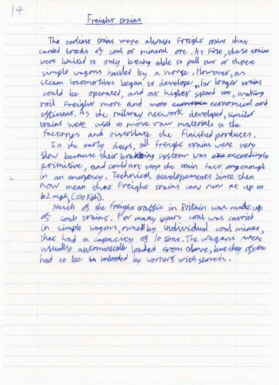 14
Freight trains
The earliest trains were always freight trains that
carried loads of coal or mineral ore. At first, these trains
were limited to only being able to pull two or three
simple wagons hauled by a horse. However, as
steam locomotives began to develope, far longer trains
could be operated, and at higher speed too, making
rail freight more and more economical and
efficient. As the railway network developed, mixed
trains were used to move raw materials to the
factorys and distribute the finished producer.
In the early days, all freight trains were very
slow because their braking systems was exceedingly
primitive, and could not stop the train fast enough
in an emergency. Technical developements since then
now mean that freight trains can run at up to
62 mph, (100 Kph).
Much of the freight traffic in Britain was made up
of coal trains. For many years coal was carried
in simple wagons, owned by individual coal mines,
that had a capacity of 10 tons. The wagons were
usually automatically loaded from above, but they often
had to be unloaded by workers with shovels.